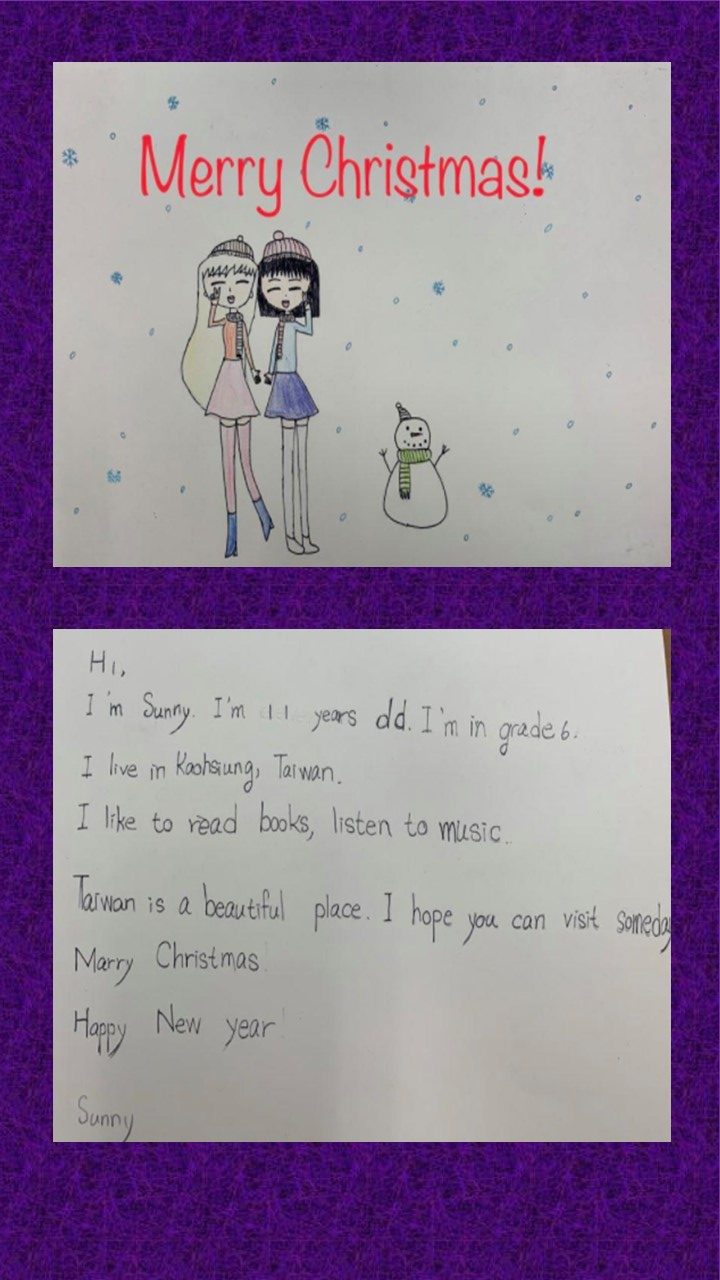 Merry Christmas!
Hi,
I'm Sunny. I'm 11 years old. I'm in grade 6.
I live in Kaohsiung, Taiwan.
I like to read books, listen to music.
Taiwan is a beautiful place. I hope you can visit someday
Marry Christmas!
Happy New year!
Sunny